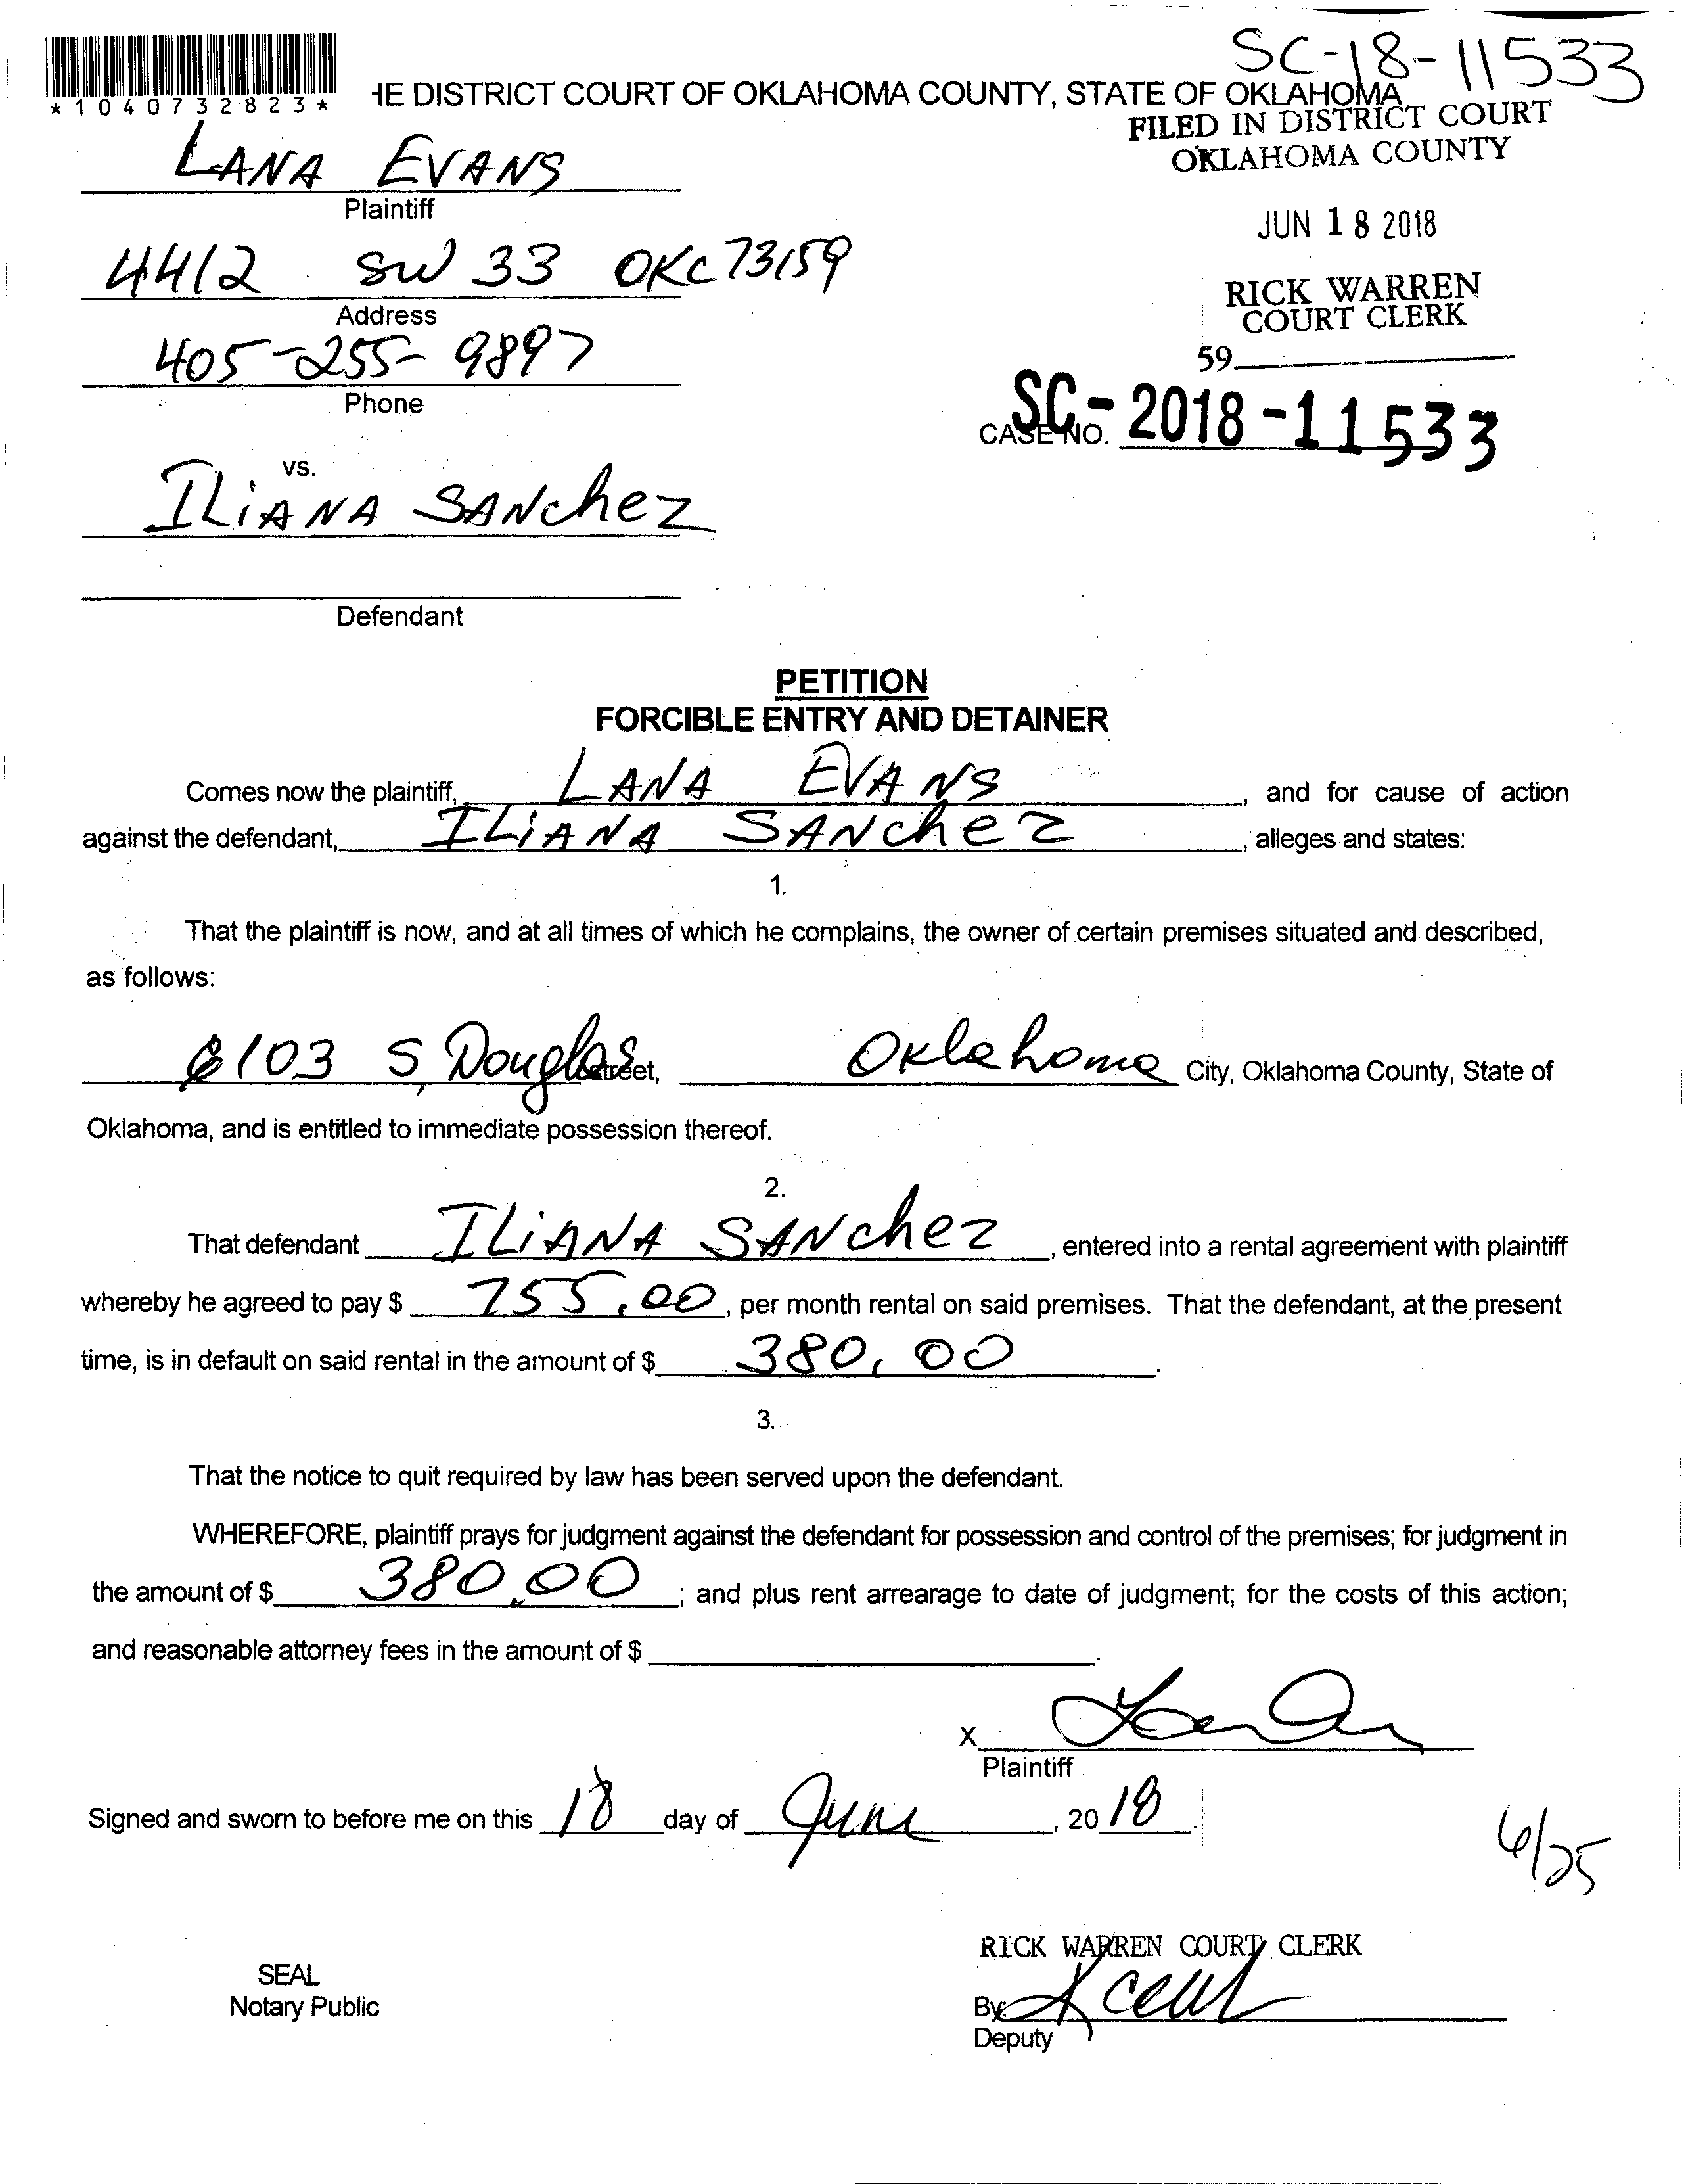 SC-18-11533
*1040732823*
HE DISTRICT COURT OF OKLAHOMA COUNTY, STATE OF OKLAHOMA
FILED IN DISTRICT COURT
OKLAHOMA COUNTY
LANA EVANS
Plaintiff
JUN 18 2018
4412 SW 33 OKC 73159
Address
RICK WARREN
COURT CLERK
405-255-9897
59
Phone
CASE NO. SC-2018-11533
vs.
ILiANA SANchez
Defendant
PETITION
FORCIBLE ENTRY AND DETAINER
Comes now the plaintiff, LANA EVANS, and for cause of action
against the defendant, ILiANA SANchez, alleges and states:
1.
That the plaintiff is now, and at all times of which he complains, the owner of certain premises situated and described,
as follows:
6103 S. Douglas Street, Oklahoma City, Oklahoma County, State of
Oklahoma, and is entitled to immediate possession thereof.
2.
That defendant ILiANA SANchez, entered into a rental agreement with plaintiff
whereby he agreed to pay $ 755.00, per month rental on said premises. That the defendant, at the present
time, is in default on said rental in the amount of $ 380.00.
3.
That the notice to quit required by law has been served upon the defendant.
WHEREFORE, plaintiff prays for judgment against the defendant for possession and control of the premises; for judgment in
the amount of $ 380.00; and plus rent arrearage to date of judgment; for the costs of this action;
and reasonable attorney fees in the amount of $
X
Plaintiff
Signed and sworn to before me on this 18 day of June, 2018.
6/25
RICK WARREN COURT CLERK
SEAL
Notary Public
By:
Deputy